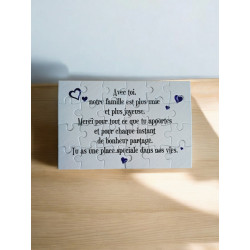 Avec toi,
notre famille est plus unie
et plus joyeuse.
Merci pour tout ce que tu apportes
et pour chaque instant
de bonheur partagé.
Tu as une place spéciale dans nos vies.